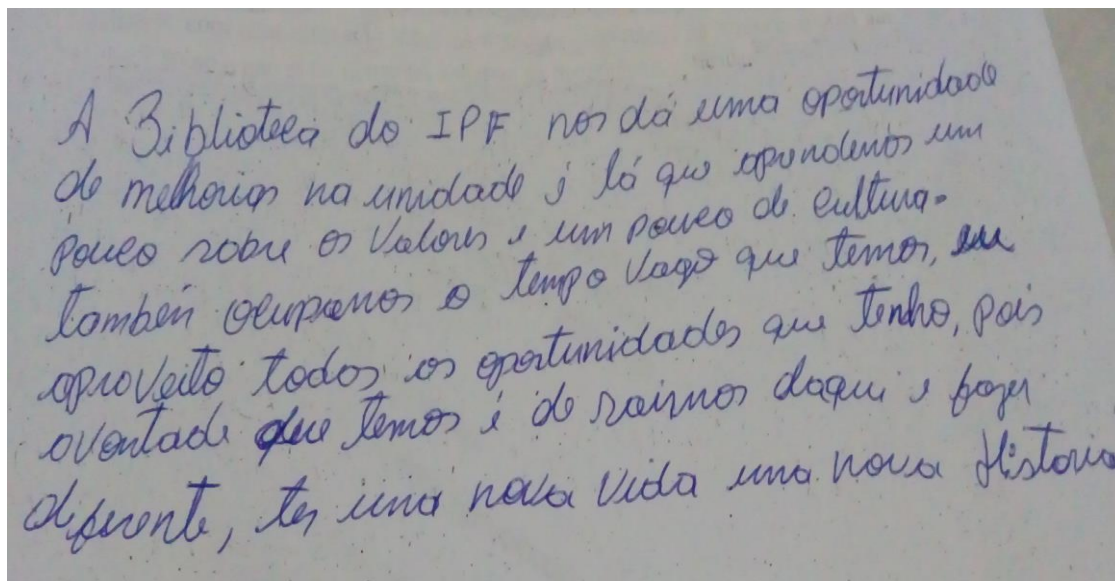 A Biblioteca do IPF nos dá uma oportunidade
de melhorias na unidade é lá que aprendemos um
pouco sobre os valores e um pouco de cultura.
também ocupamos o tempo vago que temos, eu
aproveito todas as oportunidades que tenho, pois
a vontade que temos é de sairmos daqui e fazer
diferente, ter uma nova vida uma nova História